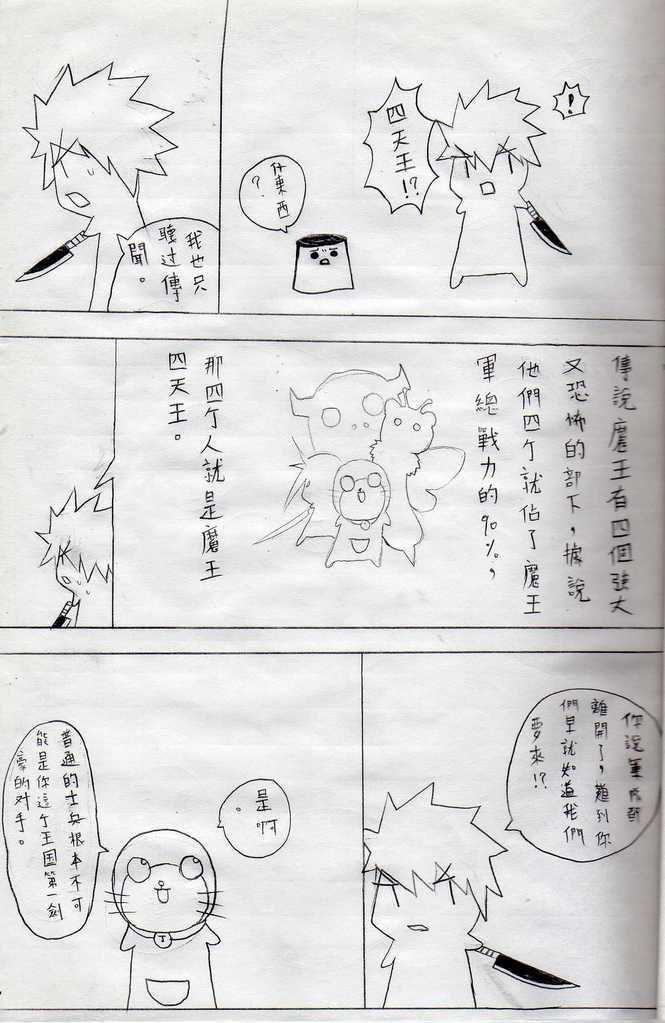 !
四天王!?
什東西
?
我也只
聽过傳
聞。
傳說魔王有四個強大
又恐怖的部下，據說
他們四个就佔了魔王
軍總戰力的90%，
那四个人就是魔王
四天王。
你說軍隊都
離開了，難到你
們早就知道我們
要來!?
是啊
。
普通的士兵根本不可
能是你這个王国第一劍
豪的对手。